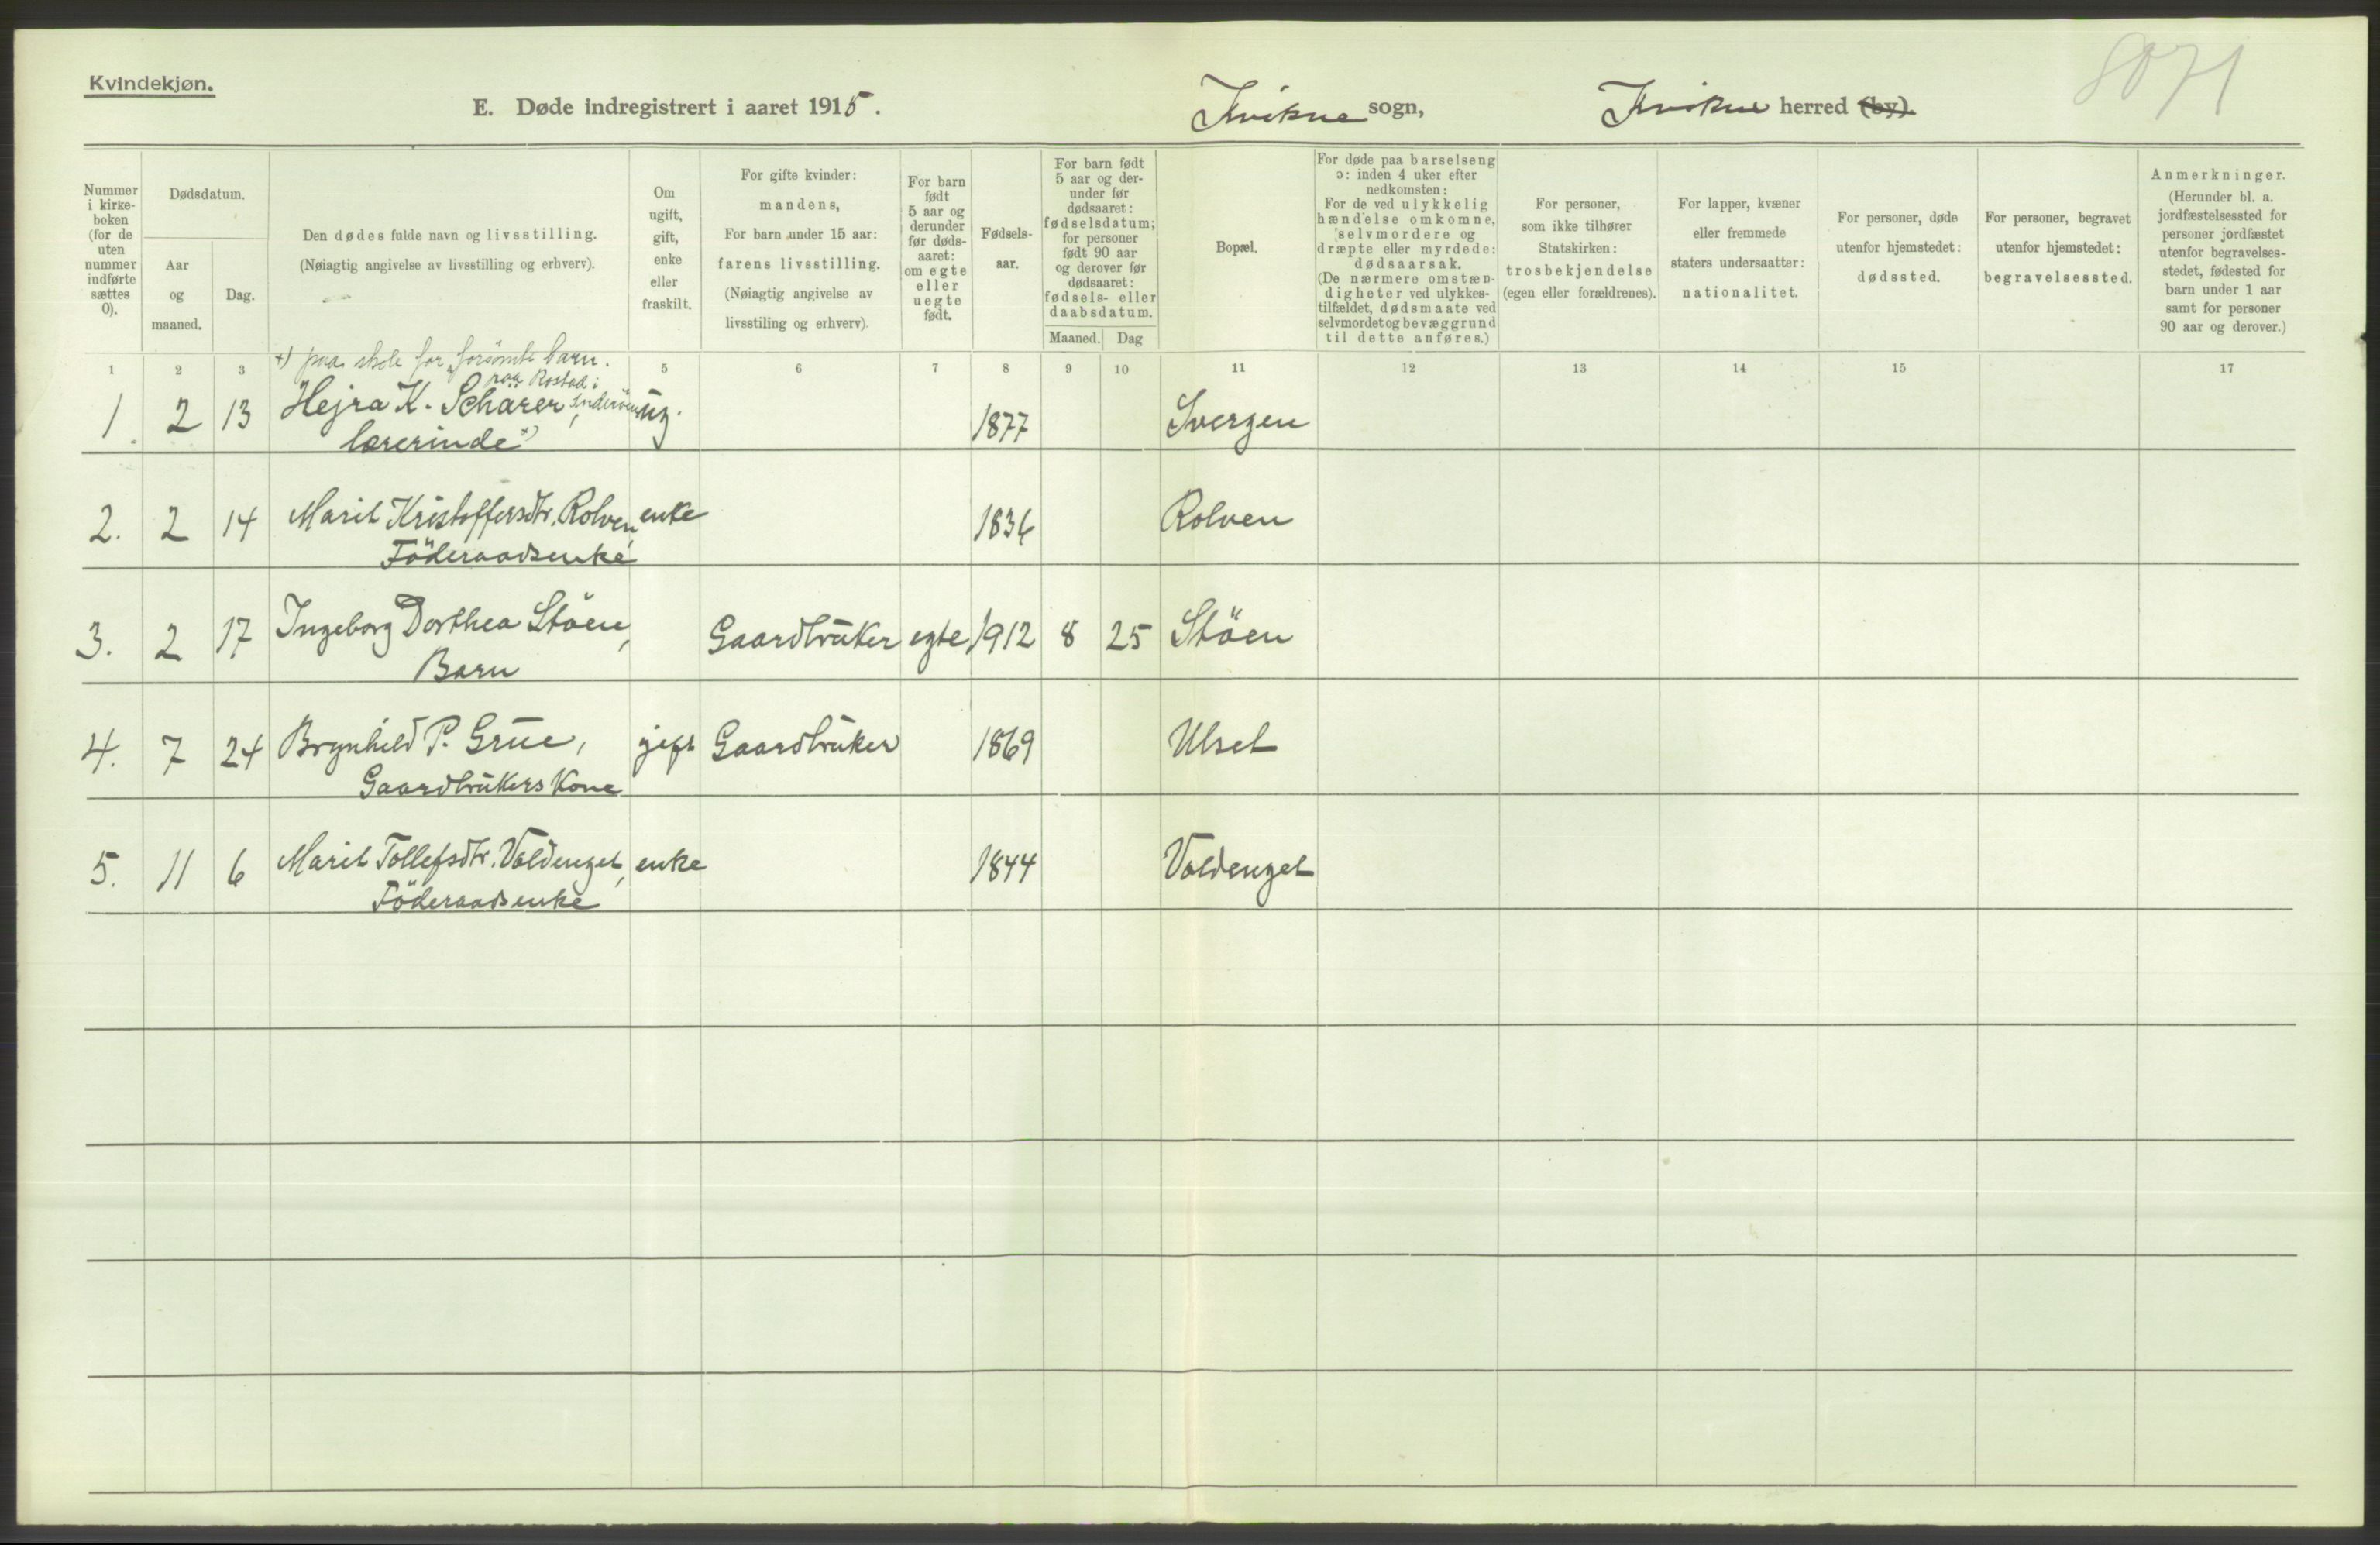 Kvindekjøn.
8071
E. Døde indregistrert i aaret 1915.
Kvikne sogn,
Kvikne herred (by).
Nummer i kirke-boken (for de uten nummer indførte sættes 0).
Dødsdatum.
Aar og maaned.
Dag.
Den dødes fulde navn og livsstilling.
(Nøiagtig angivelse av livsstilling og erhverv).
Om ugift, gift, enke eller fraskilt.
For gifte kvinder:
mandens,
For barn under 15 aar:
farens livsstilling.
(Nøiagtig angivelse av
livsstiling og erhverv).
For barn født 5 aar og derunder før døds-aaret: om egte eller uegte født.
Fødsels-aar.
For barn født
5 aar og der-
under før
dødsaaret:
fødselsdatum;
for personer
født 90 aar
og derover før
dødsaaret:
fødsels- eller
daabsdatum.
Maaned. Dag
Bopæl.
For døde paa barselseng
ɔ: inden 4 uker efter
nedkomsten:
For de ved ulykkelig
hændelse omkomne,
selvmordere og
dræpte eller myrdede:
dødsaarsak.
(De nærmere omstæn-
digheter ved ulykkes-
tilfældet, dødsmaate ved
selvmordet og bevæggrund
til dette anføres.)
For personer,
som ikke tilhører
Statskirken:
trosbekjendelse
(egen eller forældrenes).
For lapper, kvæner
eller fremmede
staters undersaatter:
nationalitet.
For personer, døde
utenfor hjemstedet:
dødssted.
For personer, begravet
utenfor hjemstedet:
begravelsessted.
Anmerkninger.
(Herunder bl. a.
jordfæstelsessted for
personer jordfæstet
utenfor begravelses-
stedet, fødested for
barn under 1 aar
samt for personer
90 aar og derover.)
+) paa skole for forsömte barn.
paa Rostad i
Inderöen
1 2 3 5 6 7 8 9 10 11 12 13 14 15 17
1. 2 13 Hejra K. Schärer, ug. 1877 Svergen
lærerinde +)
2. 2 14 Marit Kristoffersdtr. Rolven, enke 1836 Rolven
Föderaadsenke
3. 2 17 Ingeborg Dorthea Stöen, Gaardbruker egte 1912 8 25 Stöen
Barn
4. 7 24 Brynhild P. Grue, gift Gaardbruker 1869 Ulset
Gaardbrukers Kone
5. 11 6 Marit Tollefsdtr. Voldenget, enke 1844 Voldenget
Föderaadsenke